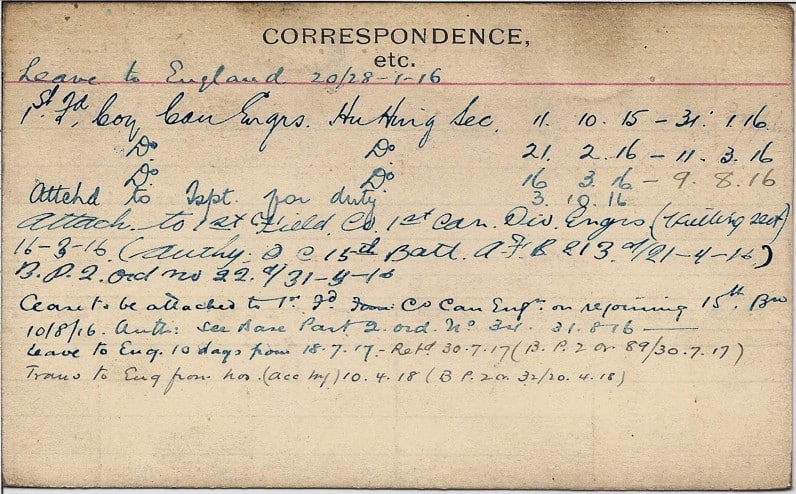 CORRESPONDENCE,
etc.
Leave to England 20/28-1-16
1st Fd. Coy Can Engrs. Hutting Sec. 11. 10. 15 - 31. 1. 16
Do Do 21. 2. 16 - 11. 3. 16
Do Do 16 3. 16 - 9. 8. 16
Attchd to Tspt. for duty 3. 10. 16
Attach. to 1st Field Co. 1st Can. Div. Engrs (Hutting Sect)
16-3-16. (Authy. O C 15th Batt. A.F.B 213 d/21-4-16.)
B.P.2. Ord no 22 d/31-4-16
Cease to be attached to 1st Fd Co Can Engrs on rejoining 15th Bn
10/8/16. Auth: see Base Part 2 ord. No 34. 31.8.16
Leave to Eng. 10 days from 18.7.17 - Retd 30.7.17 (B.P.2 Or 89/30.7.17)
Trans to Eng from hos. (acc inj) 10.4.18 (B P.2 Or 32/20.4.18)